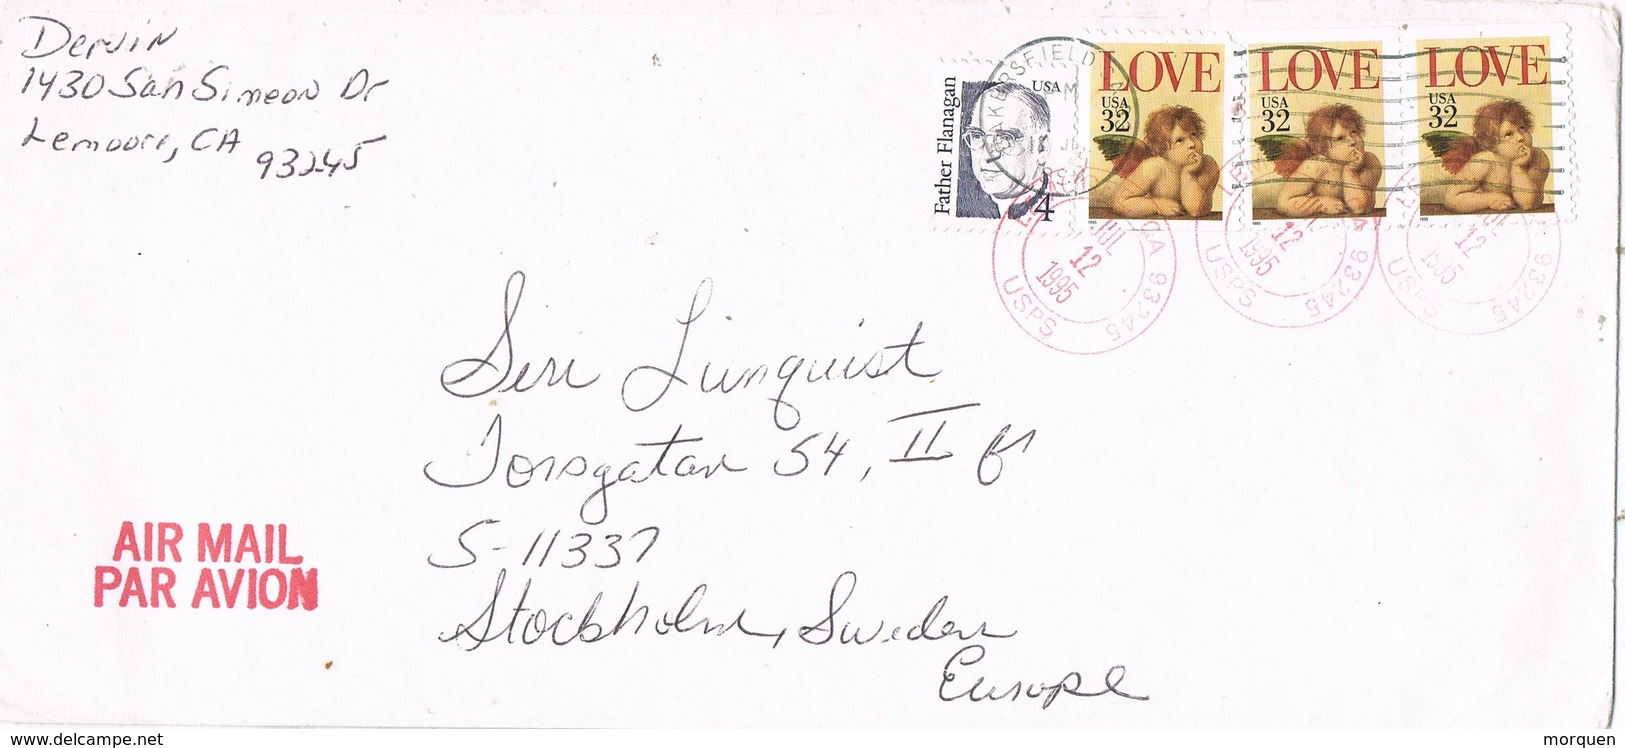 Dervin
1430 San Simeon Dr
Lemoore, CA
93245
Father Flanagan
USA
4
LOVE
USA
32
LOVE
USA
32
1995
LOVE
USA
32
1995
BAKERSFIELD
JUL
12
1995
CA 93245
USPS
12
1995
93245
USPS
12
1995
93245
USPS
Siri Lunquist
Torsgatan 54, II
S-11337
Stockholm, Sweden
Europe
AIR MAIL
PAR AVION
www.delcampe.net
morquen